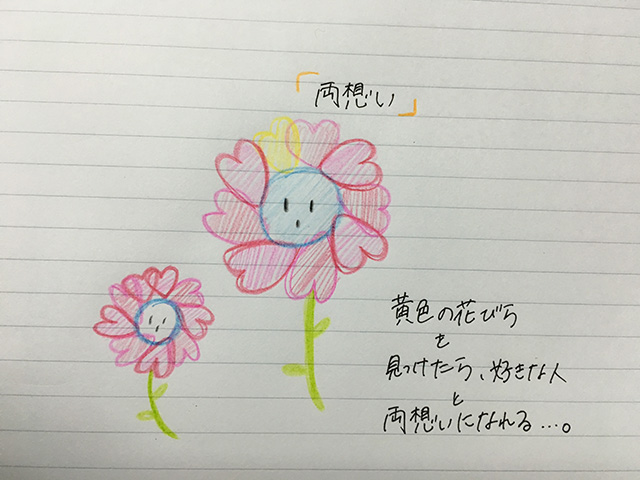 「両想い」
黄色の花びら
を
見つけたら、好きな人
と
両想いになれる…。